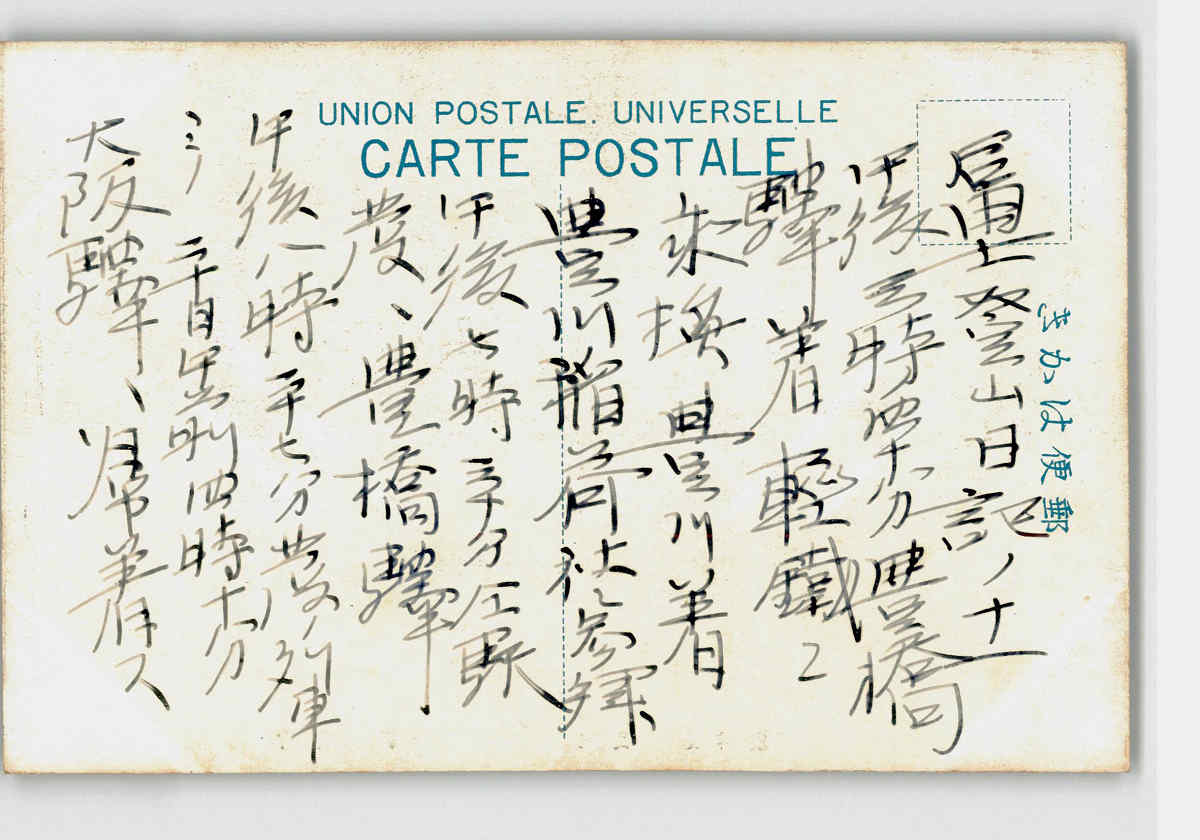 UNION POSTALE. UNIVERSELLE
CARTE POSTALE
きかは便郵
富士登山日記ノ十一
午後三時四十分豊橋
驛着軽鐵ニ
乗換豊川着
豊川稲荷社参拝、
午後七時三十分同驛
発、豊橋驛
午後八時三十七分発列車
ニテ 二十日午前四時十分
大阪驛、帰着ス